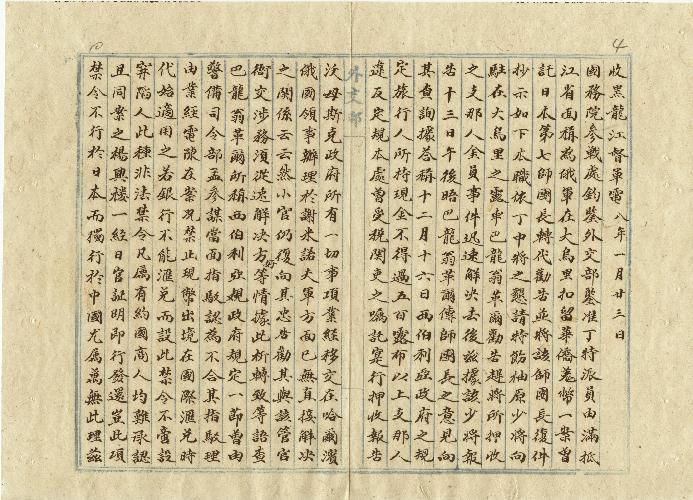 4
收黑龍江督軍電 八年一月廿三日
國務院參戰處鈞鑒外交部鑒准丁特派員由滿抵
江省面稱為俄軍在大烏里扣留華僑羌幣一案曾
託日本第七師團長轉代勸告並將該師團長復件
抄示如下本職依丁中將之懇請特飭柚原少將向
駐在大烏里之露軍巴龍翁革爾勸告趕將所押收
之支那人金員事件迅速解決去後茲據該少將報
告十三日午後晤巴龍翁革爾傳師團長之意見向
其查詢據答稱十二月十六日西伯利亞政府之規
定旅行人所持現金不得過五百露布以上支那人
違反定規本處曾受稅關吏之囑託實行押收報告
外交部
沃毋斯克政府所有一切事項業經移交在哈爾濱
俄國領事辦理於謝米諾夫軍方面已無直接解決
之關係云云然小官仍復向其忠告勸其與該管官
衙交涉務須從速解決方好等情據此析轉致等語查
巴龍翁革爾所稱西伯利亞規政府規定一節曾由
警備司令部孟參謀當面指駁認為不合其指駁理
由業經電陳在案況禁止現幣出境在國際滙兌時
代始適用之若銀行不能滙兌而設此禁令不啻設
穽陷人此種非法禁令凡屬有約國商人均難承認
且同案之楊興樓一經日官証明即行發還豈此項
禁令不行於日本而獨行於中國尤屬萬無此理茲